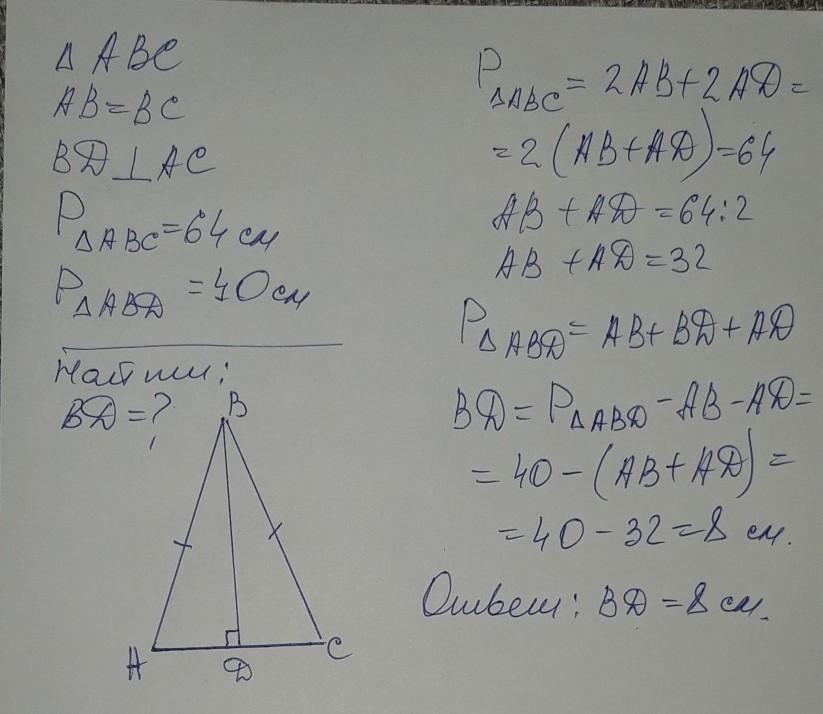 Δ ABC
AB=BC
BD⊥AC
PΔABC=64 см
PΔABD =40 см
Найти:
BD=?
B
A
D
C
PΔABC= 2AB+2AD=
=2(AB+AD)=64
AB +AD =64:2
AB +AD=32
PΔABD= AB+BD+AD
BD= PΔABD -AB-AD=
= 40-(AB+AD)=
=40-32=8 см.
Ответ: BD =8 см.